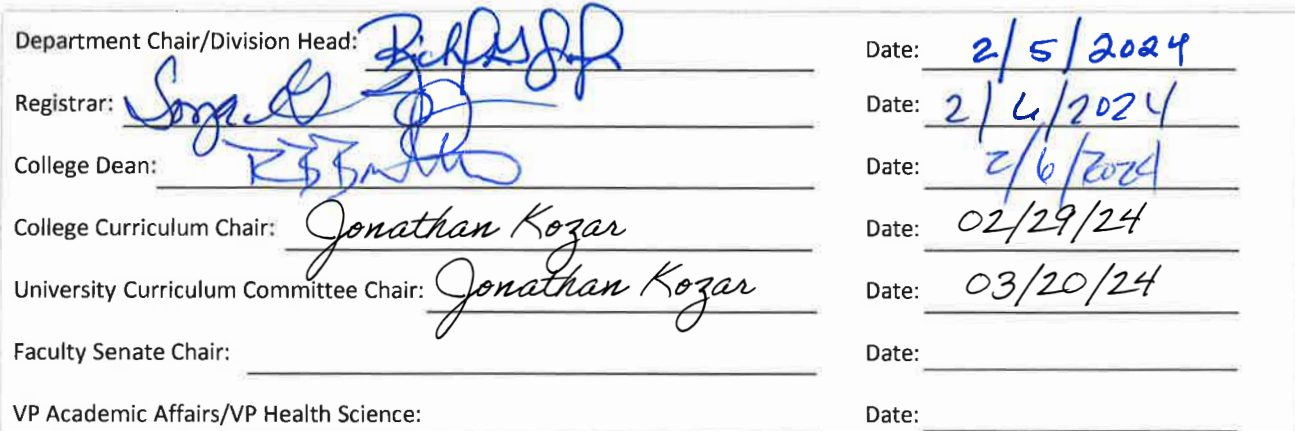 Department Chair/Division Head: Date: 2/5/2024
Registrar: Date: 2/6/2024
College Dean: Date: 2/6/2024
College Curriculum Chair: Jonathan Kozar Date: 02/29/24
University Curriculum Committee Chair: Jonathan Kozar Date: 03/20/24
Faculty Senate Chair: Date:
VP Academic Affairs/VP Health Science: Date: